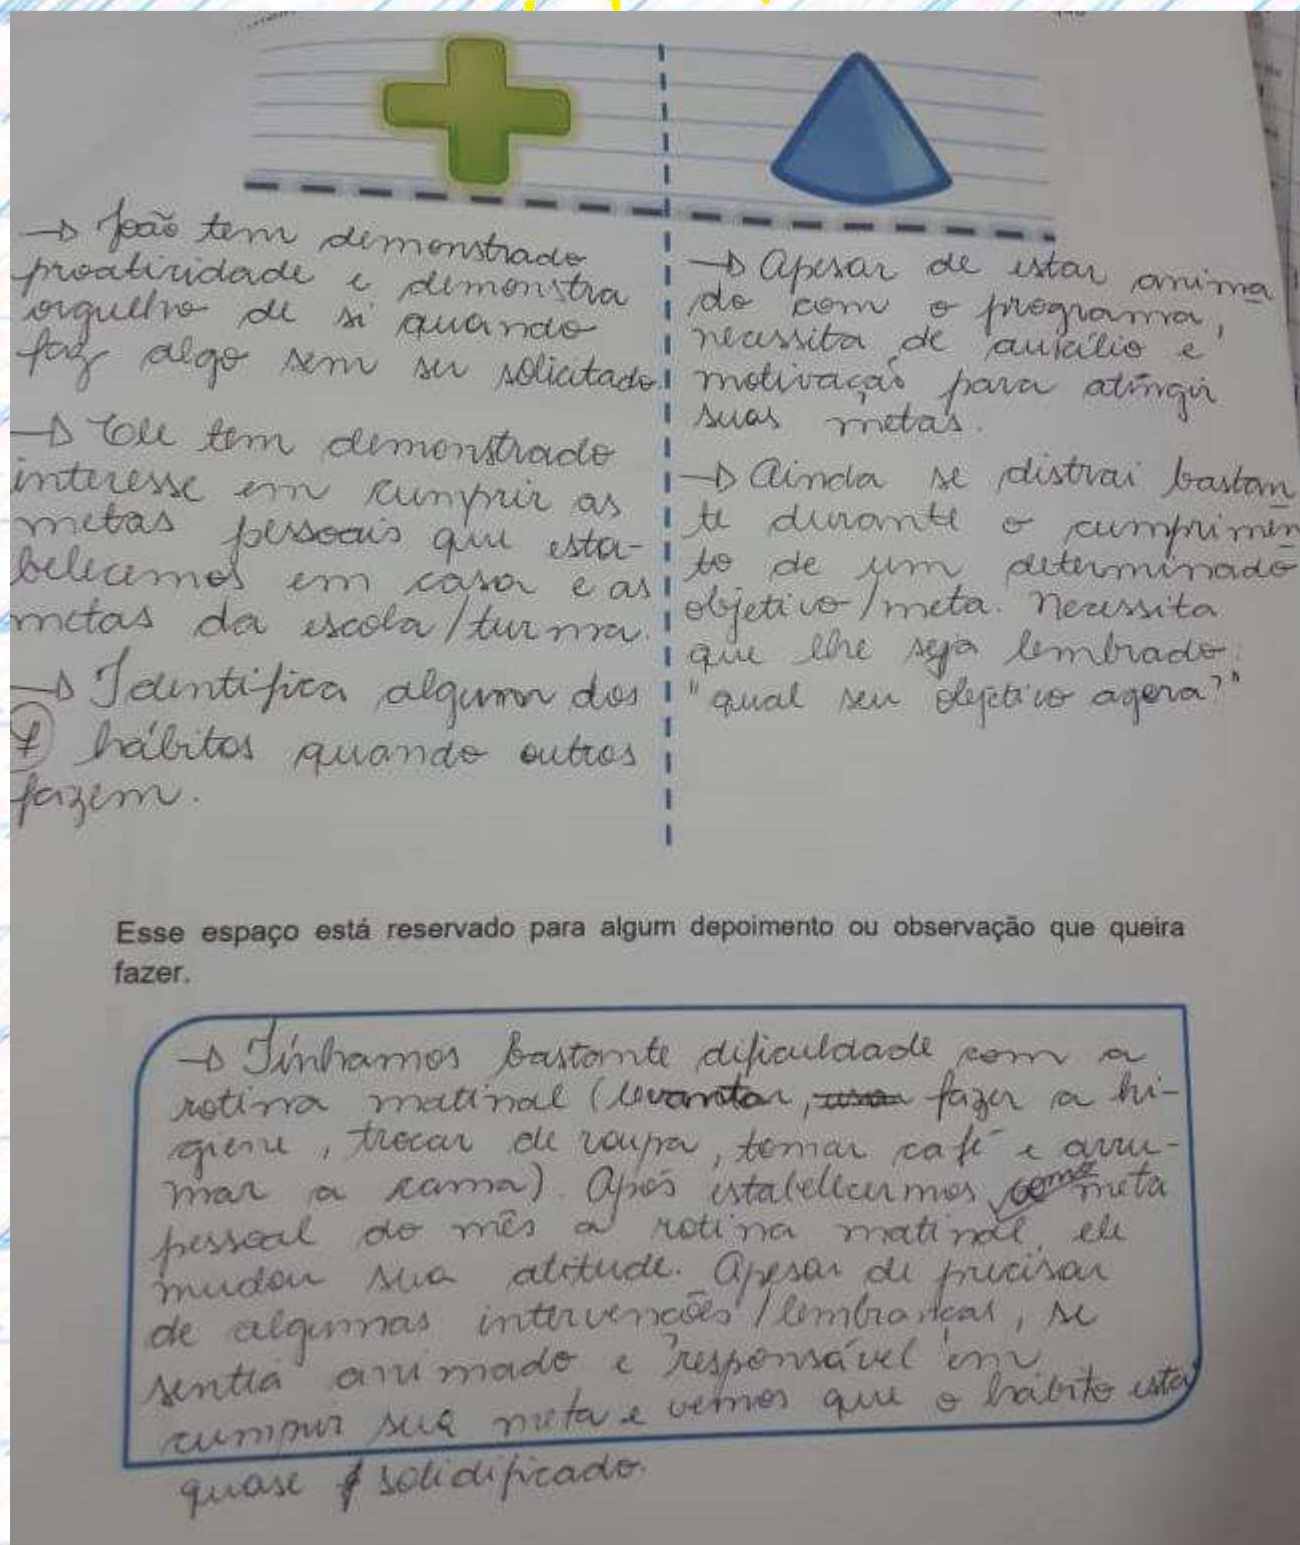 → João tem demonstrado
proatividade e demonstra
orgulho de si quando
faz algo sem ser solicitado.
→ Ele tem demonstrado
interesse em cumprir as
metas pessoais que esta-
belecemos em casa e as
metas da escola/turma.
→ Identifica algum dos
7 hábitos quando outros
fazem.
→ Apesar de estar anima
do com o programa,
necessita de auxílio e
motivação para atingir
suas metas.
→ Ainda se distrai bastan
te durante o cumprimen
to de um determinado
objetivo/meta. Necessita
que lhe seja lembrado:
"qual seu objetivo agora?"
Esse espaço está reservado para algum depoimento ou observação que queira
fazer.
→ Tínhamos bastante dificuldade com a
rotina matinal (levantar, fazer a hi-
giene, trocar de roupa, tomar café e arru-
mar a cama). Após estabelecermos como meta
pessoal do mês a rotina matinal, ele
mudou sua atitude. Apesar de precisar
de algumas intervenções/lembranças, se
sentia animado e "responsável" em
cumprir sua meta e vemos que o hábito está
quase solidificado.